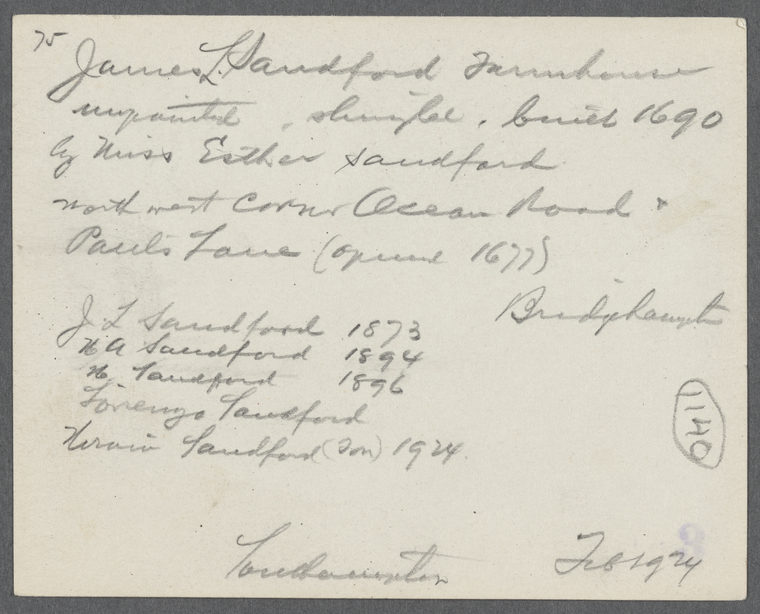 75
James L. Sandford Farmhouse
unpainted, shingled. built 1690
by Miss Esther Sandford
north west corner Ocean Road &
Paul's Lane (opened 1677)
Bridgehampton
J L Sandford 1873
H A Sandford 1894
H. Sandford 1896
Lorenzo Sandford
Sandford (Son) 1924.
1140
3
Southampton Feb 1924